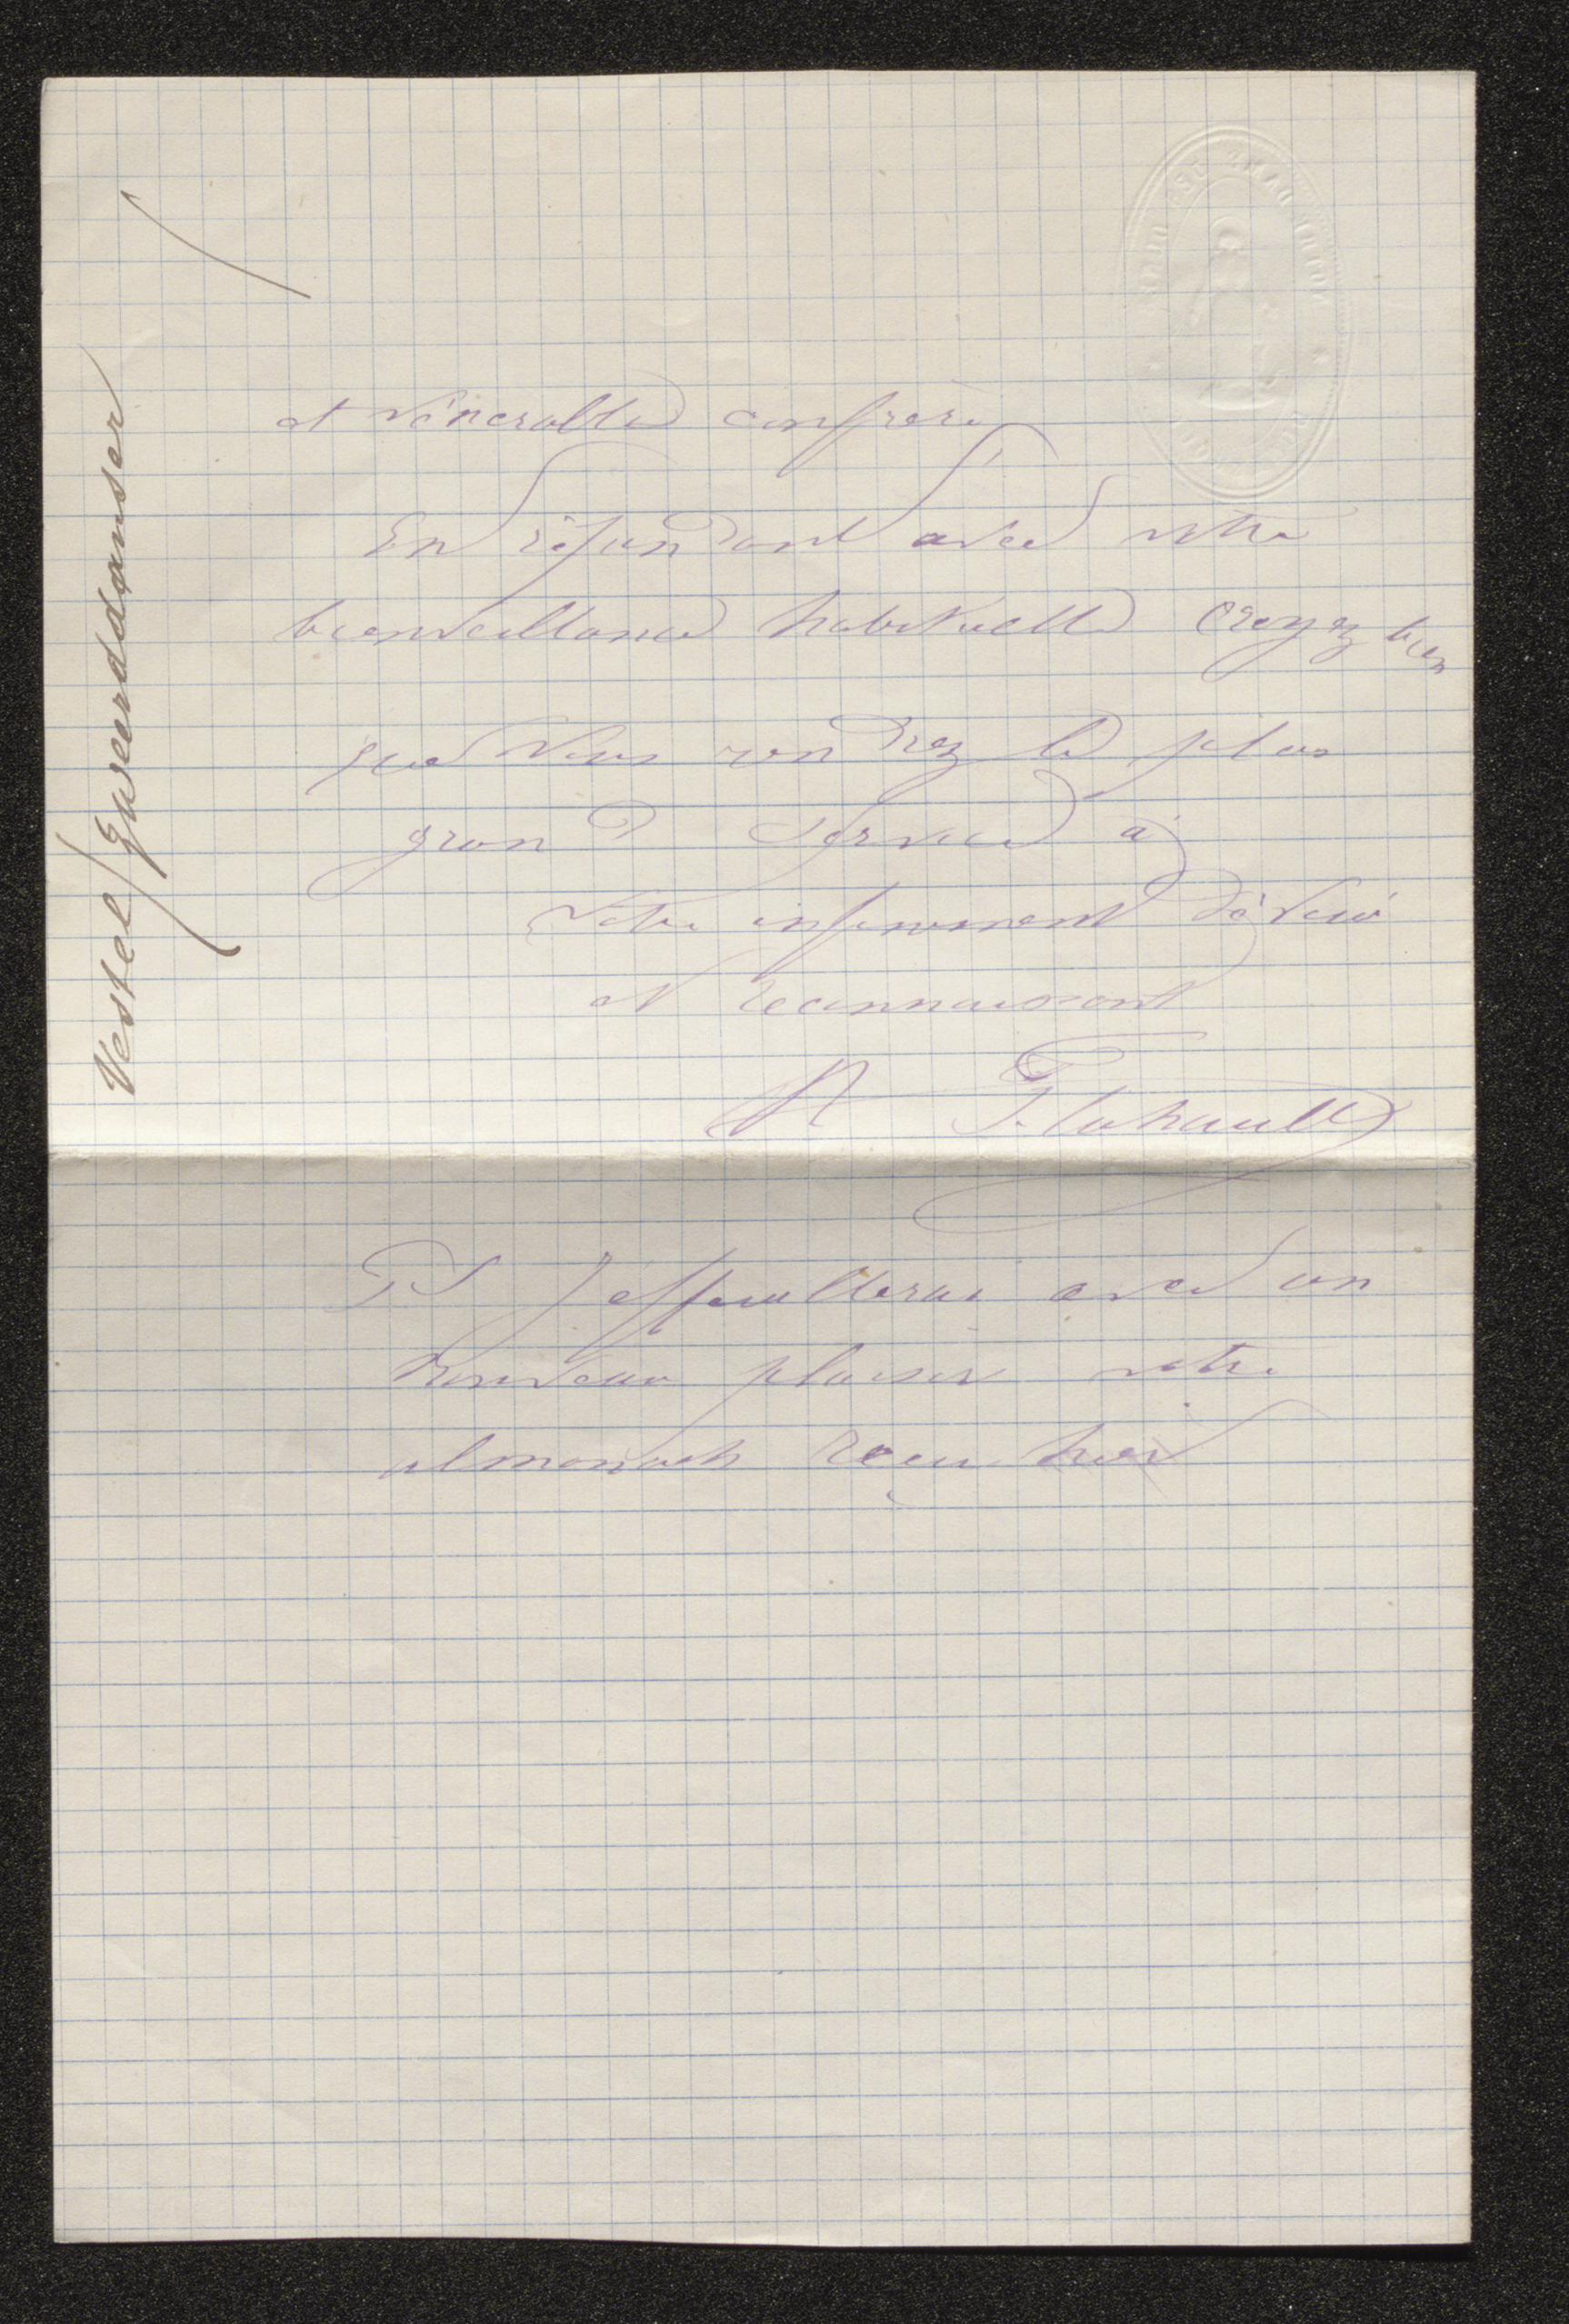 et vénérable confrère
En répondant avec votre
bienveillance habituelle croyez bien
que vous rendrez le plus
grand service à
votre infiniment dévoué
et reconnaissant
R Flahault
PS J'effeuillerai avec un
nouveau plaisir votre
almanach reçu hier
Vestel / Zweerddanser